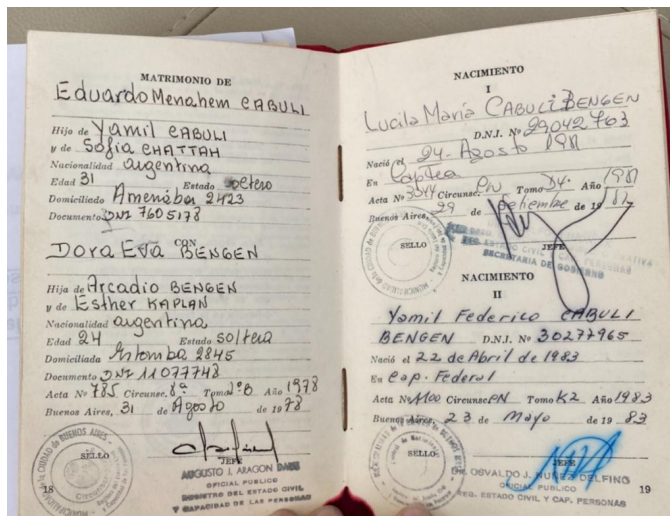 MATRIMONIO DE
Eduardo Menahem CABULI
Hijo de Yamil CABULI
y de Sofia CHATTAH
Nacionalidad argentina
Edad 31 Estado soltero
Domiciliado Amenábar 2423
Documento DNI 7605178
CON
Dora Eva BENGEN
Hija de Arcadio BENGEN
y de Esther KAPLAN
Nacionalidad argentina
Edad 24 Estado soltera
Domiciliada Estomba 2845
Documento DNI 11077748
Acta Nº 785 Circunsc. 8ª Tomo 1ºB Año 1978
Buenos Aires, 31 de Agosto de 1978
SELLO
JEFE
AUGUSTO J. ARAGON
OFICIAL PUBLICO
REGISTRO DEL ESTADO CIVIL
Y CAPACIDAD DE LAS PERSONAS
18
NACIMIENTO
I
Lucila María CABULI BENGEN
D.N.I. Nº 29042763
Nació el 24 - Agosto 1981
En Captea
Acta Nº 3044 Circunsc. PN Tomo D4. Año 1981
Buenos Aires, 29 de Setiembre de 19 81
SELLO
JEFE
REG. ESTADO CIVIL Y CAP. PERSONAS
SECRETARIA DE GOBIERNO
NACIMIENTO
II
Yamil Federico CABULI
BENGEN D.N.I. Nº 30277965
Nació el 22 de Abril de 1983
En Cap. Federal
Acta Nº 1100 Circunsc PN Tomo K2 Año 1983
Buenos Aires, 23 de Mayo de 19 83
SELLO
JEFE
DR. OSVALDO J. NUÑEZ DELFINO
OFICIAL PUBLICO
REG. ESTADO CIVIL Y CAP. PERSONAS
19